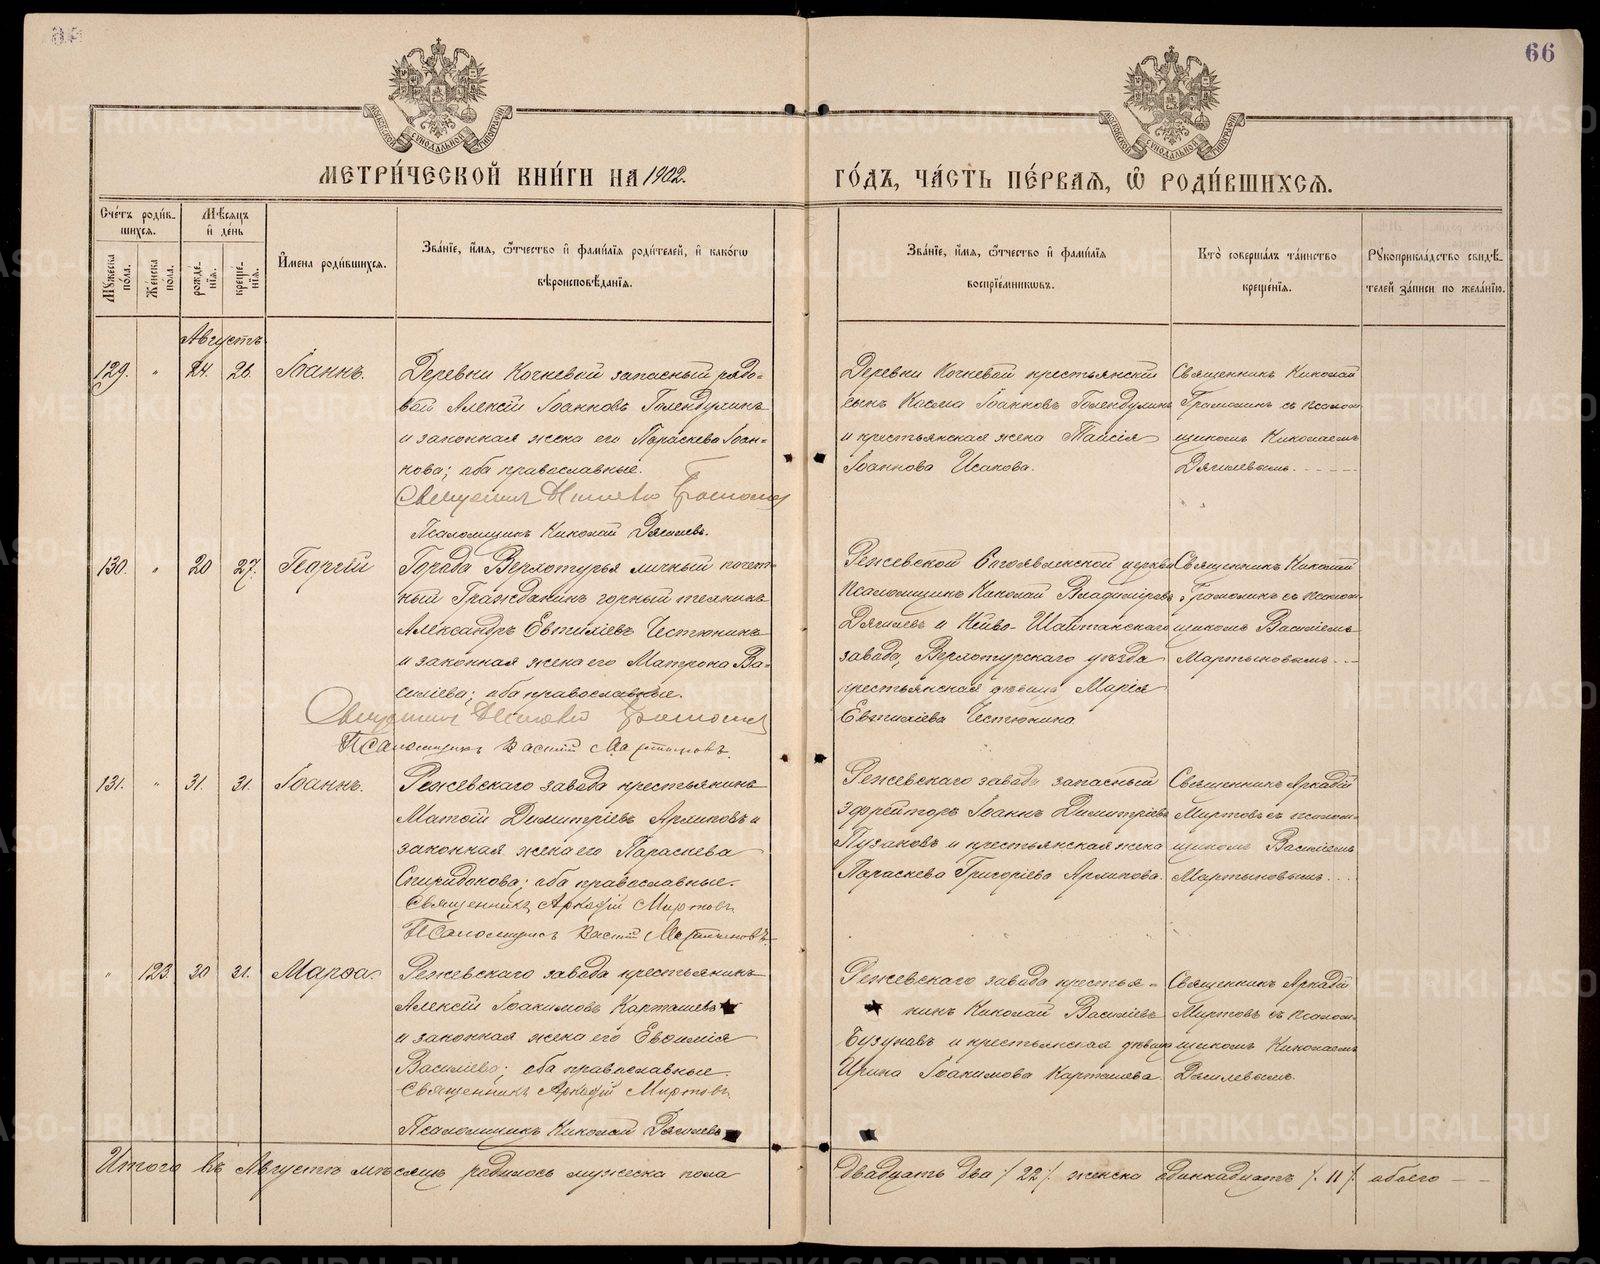 66
МОСКОВСКОЙ СѴНОДАЛЬНОЙ ТИПОГРАФІИ
МОСКОВСКОЙ СѴНОДАЛЬНОЙ ТИПОГРАФІИ
МЕТРИ́ЧЕСКОЙ КНИ́ГИ НА 1902.
ГО́ДЪ, ЧА́СТЬ ПЕ́РВАѦ, Ѽ РОДИ́ВШИХСѦ.
Сче́тъ роди́в-
шихсѧ.
Мꙋ́жеска по́ла.
Же́нска по́ла.
Мѣ́сѧцъ
и҆ де́нь
рожде́-
нїѧ.
креще́-
нїѧ.
И҆́мена роди́вшихсѧ.
Зва́нїе, и҆́мѧ, ѻ҆́тчество и҆ фами́лїѧ роди́телей, и҆ како́гѡ
вѣроисповѣ́данїѧ.
Зва́нїе, и҆́мѧ, ѻ҆́тчество и҆ фами́лїѧ
воспрїе́мникѡвъ.
Кто̀ соверша́лъ та́инство
креще́нїѧ.
Рꙋкоприкла́дство свидѣ́-
телей за́писи по жела́нїю.
Августъ
129. " 24. 26. Іоаннъ.
Деревни Кочневой запасный рядо-
вой Алексій Іоанновъ Голендухинъ
и законная жена его Параскева Іоан-
нова; оба православные.
Псаломщикъ Николай Дягилевъ.
Деревни Кочневой крестьянскій
сынъ Косма Іоанновъ Голендухинъ
и крестьянская жена Таисія
Іоаннова Исакова.
Священникъ Николай
щикомъ Николаемъ
Дягилевымъ.
130. " 20 27. Георгій
Города Верхотурья личный почет-
ный Гражданинъ горный техникъ
Александръ Евѳиміевъ Чистюнинъ
и законная жена его Матрона Ва-
силіева; оба православные.
Псаломщикъ Василій Мартыновъ.
Режевской Богоявленской церкви
Псаломщикъ Николай Владиміровъ
Дягилевъ и Нейво-Шайтанскаго
завода, Верхотурскаго уѣзда
крестьянская дѣвица Марія
Евѳиміева Чистюнина
Священникъ Николай
щикомъ Василіемъ
Мартыновымъ.
131. " 31. 31. Іоаннъ.
Режевскаго завода крестьянинъ
Матѳій Димитріевъ Арлиповъ и
законная жена его Параскева
Спиридонова; оба православные.
Священникъ Аркадій Миртовъ
Псаломщикъ Василій Мартыновъ.
Режевскаго завода запасный
Эфрейторъ Іоаннъ Димитріевъ
Пузановъ и крестьянская жена
Параскева Григоріева Арлипова.
Священникъ Аркадій
Миртовъ съ псалом-
щикомъ Василіемъ
Мартыновымъ.
" 123. 30 31. Марѳа.
Режевскаго завода крестьянинъ
Алексій Іоакимовъ Карташевъ
и законная жена его Евѳимія
Василіева; оба православные.
Священникъ Аркадій Миртовъ
Псаломщикъ Николай Дягилевъ
Режевскаго завода крестья-
нинъ Николай Василіевъ
Бузунавъ и крестьянская дѣвица
Ирина Іоакимова Карташева.
Священникъ Аркадій
Миртовъ съ псалом-
щикомъ Николаемъ
Дягилевымъ.
Итого въ Августѣ мѣсяцѣ родилось мужеска пола
двадцать два /22/. женска одиннадцать /.11/. обоего
METRIKI.GASO-URAL.RU